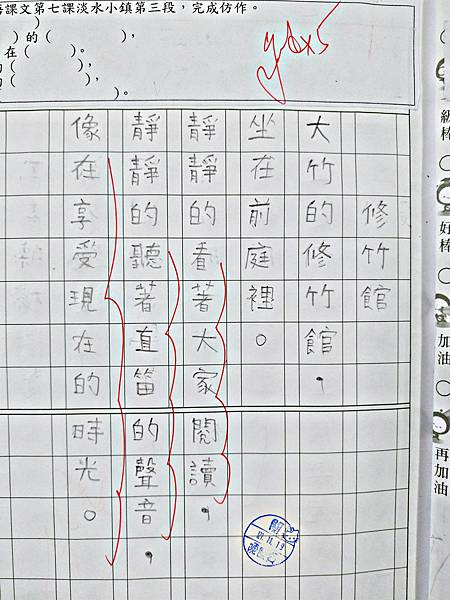 語課文第七課淡水小鎮第三段，完成仿作。
）的（　　　），
在（　　）。
的（　　　），
（　　　），
）。
修竹館
大竹的修竹館，
坐在前庭裡。
靜靜的看著大家閱讀，
靜靜的聽著直笛的聲音，
像在享受現在的時光。
級棒
好棒
加油
再加油